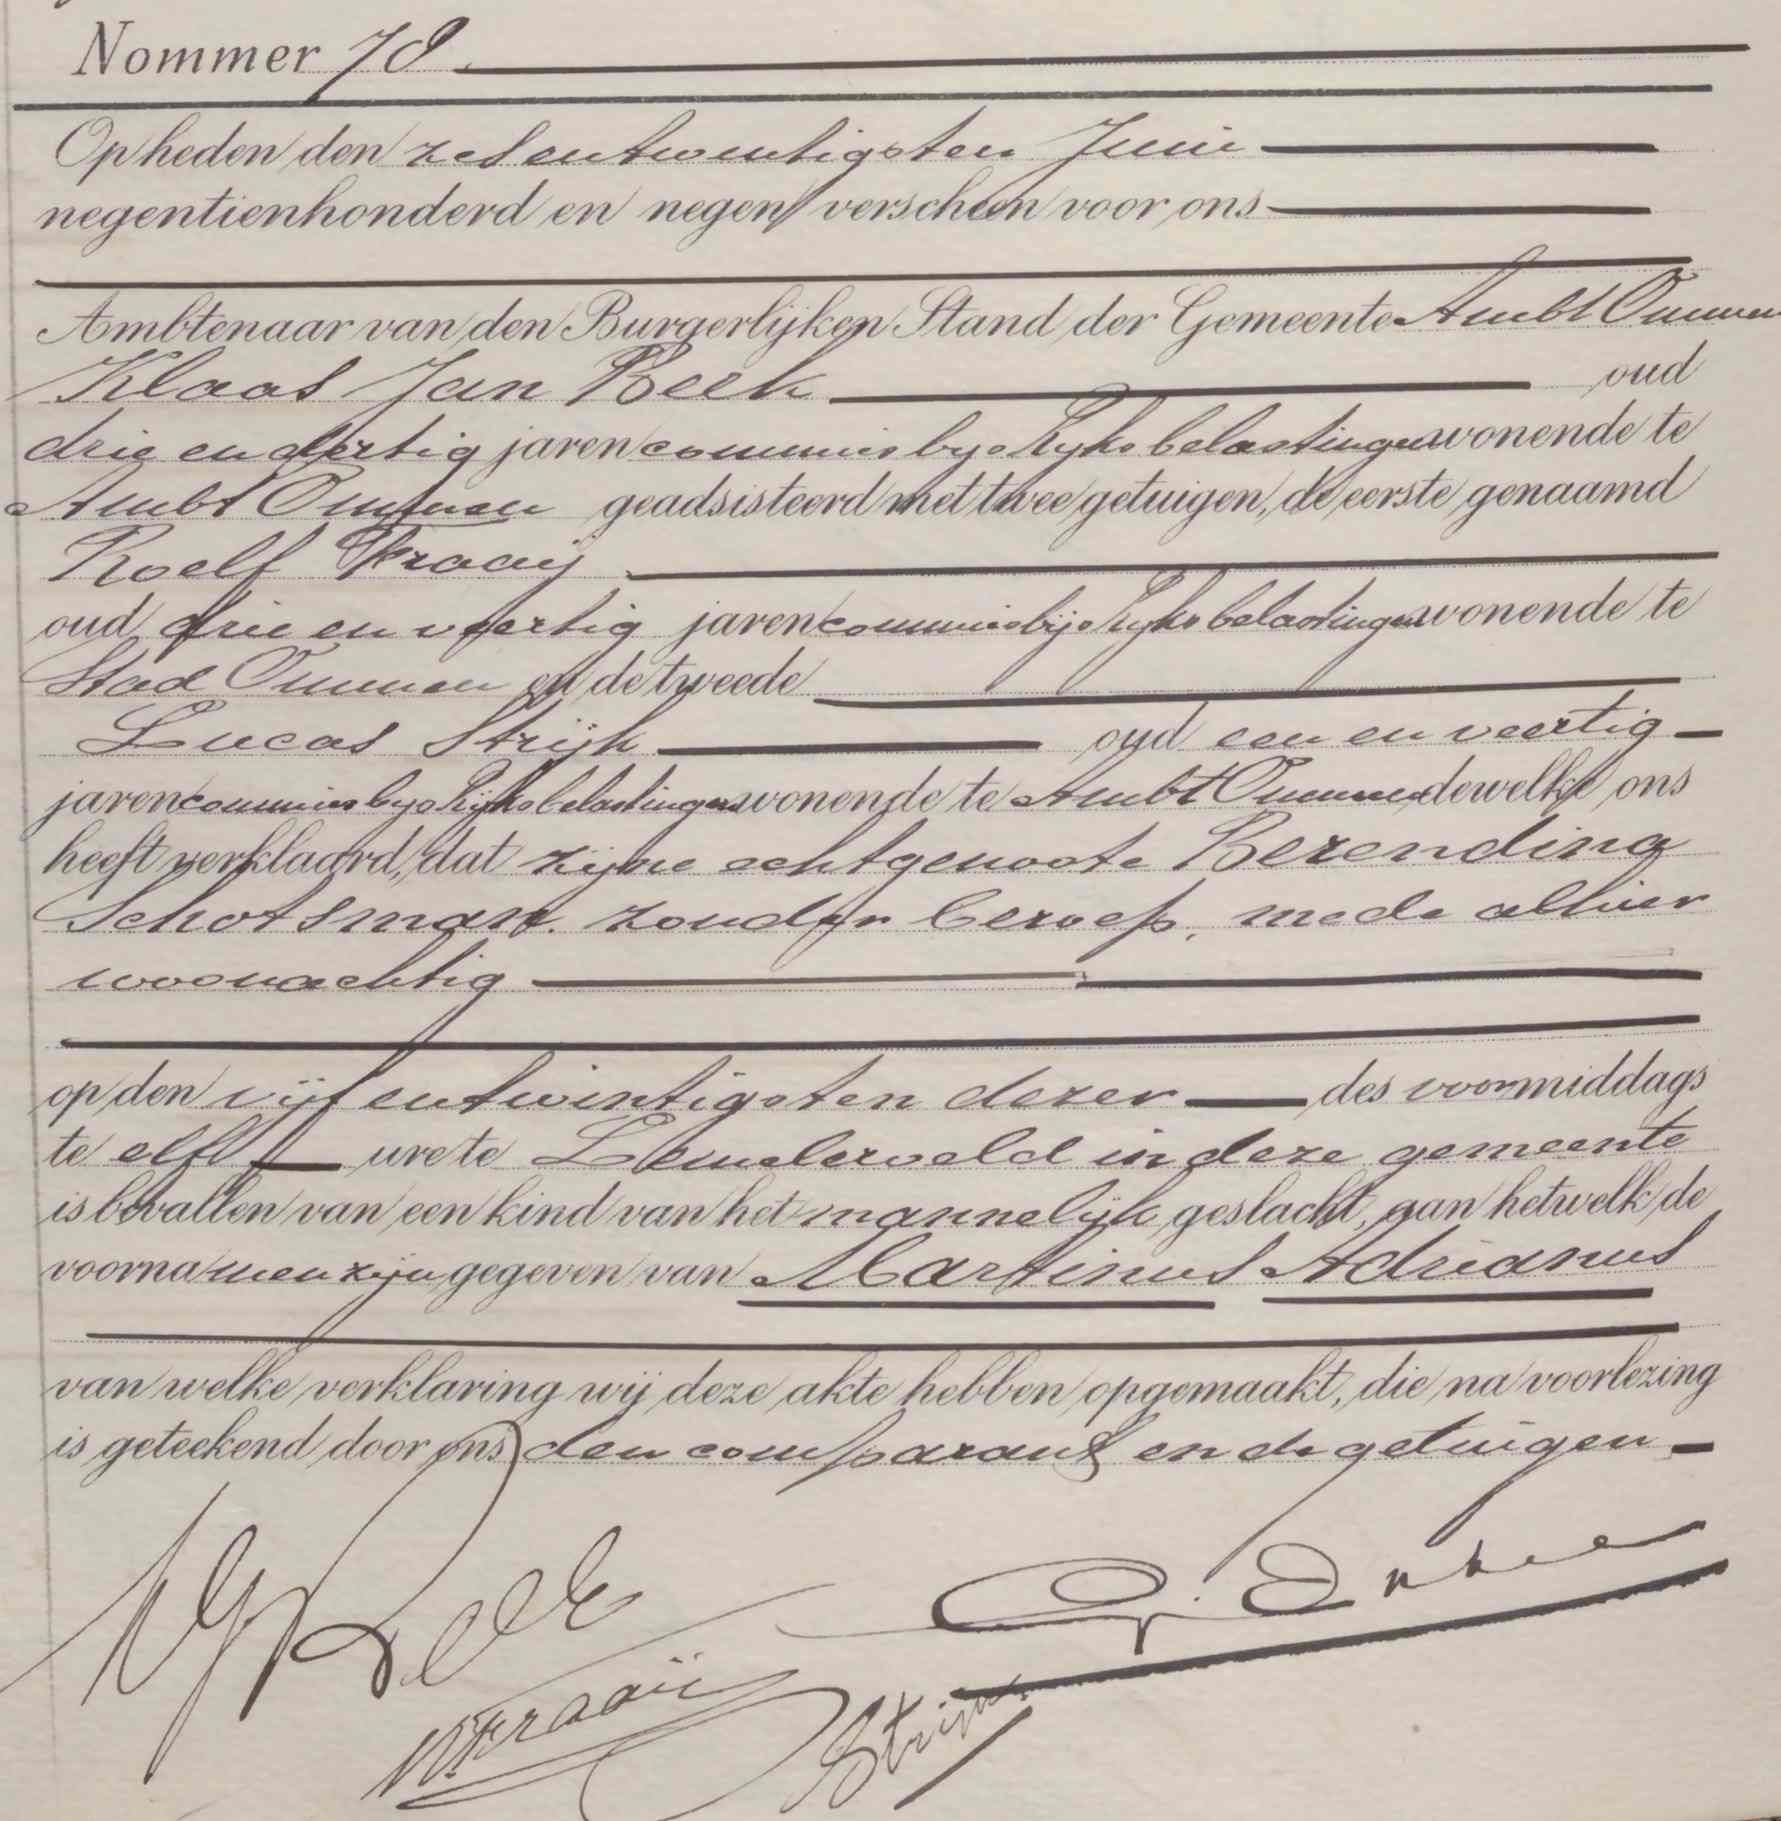 Nommer 78.
Op heden den zesentwintigsten Juni
negentienhonderd en negen verscheen voor ons
Ambtenaar van den Burgerlijken Stand der Gemeente Ambt Ommen
Klaas Jan Beek oud
drie en dertig jaren commies bij 's Rijks belastingen wonende te
Ambt Ommen geadsisteerd met twee getuigen, de eerste genaamd
Roelf Kraaij
oud drie en veertig jaren commies bij 's Rijks belastingen wonende te
Stad Ommen en de tweede
Lucas Strijk oud een en veertig
jaren commies bij 's Rijks belastingen wonende te Ambt Ommen, dewelke ons
heeft verklaard, dat zijne echtgenoote Berendina
Schotsman, zonder beroep, mede alhier
woonachtig
op den vijfentwintigsten dezer des voormiddags
te elf ure te Lemelerveld in deze gemeente
is bevallen van een kind van het mannelijk geslacht, aan hetwelk de
voornamen zijn gegeven van Martinus Adrianus
van welke verklaring wij deze akte hebben opgemaakt, die na voorlezing
is geteekend door ons, den comparant en de getuigen
KJ Beek
R. Kraaij
Strijk